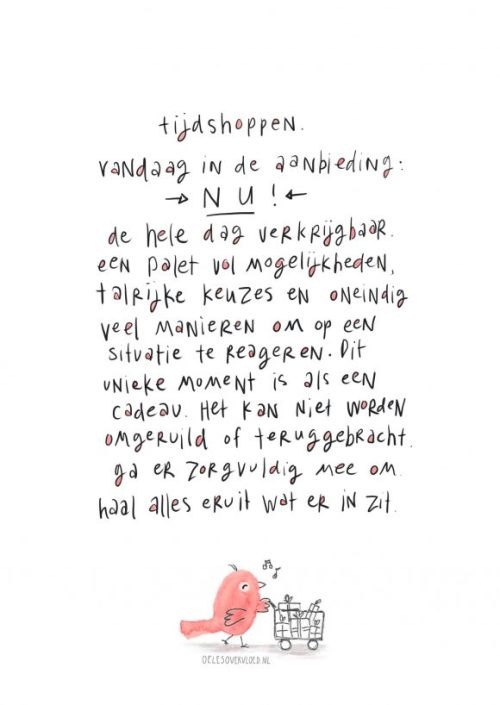 tijdshoppen.
vandaag in de aanbieding:
→ NU! ←
de hele dag verkrijgbaar.
een palet vol mogelijkheden,
talrijke keuzes en oneindig
veel manieren om op een
situatie te reageren. Dit
unieke moment is als een
cadeau. Het kan niet worden
omgeruild of teruggebracht.
ga er zorgvuldig mee om.
haal alles eruit wat er in zit.
OELESOVERVLOED.NL